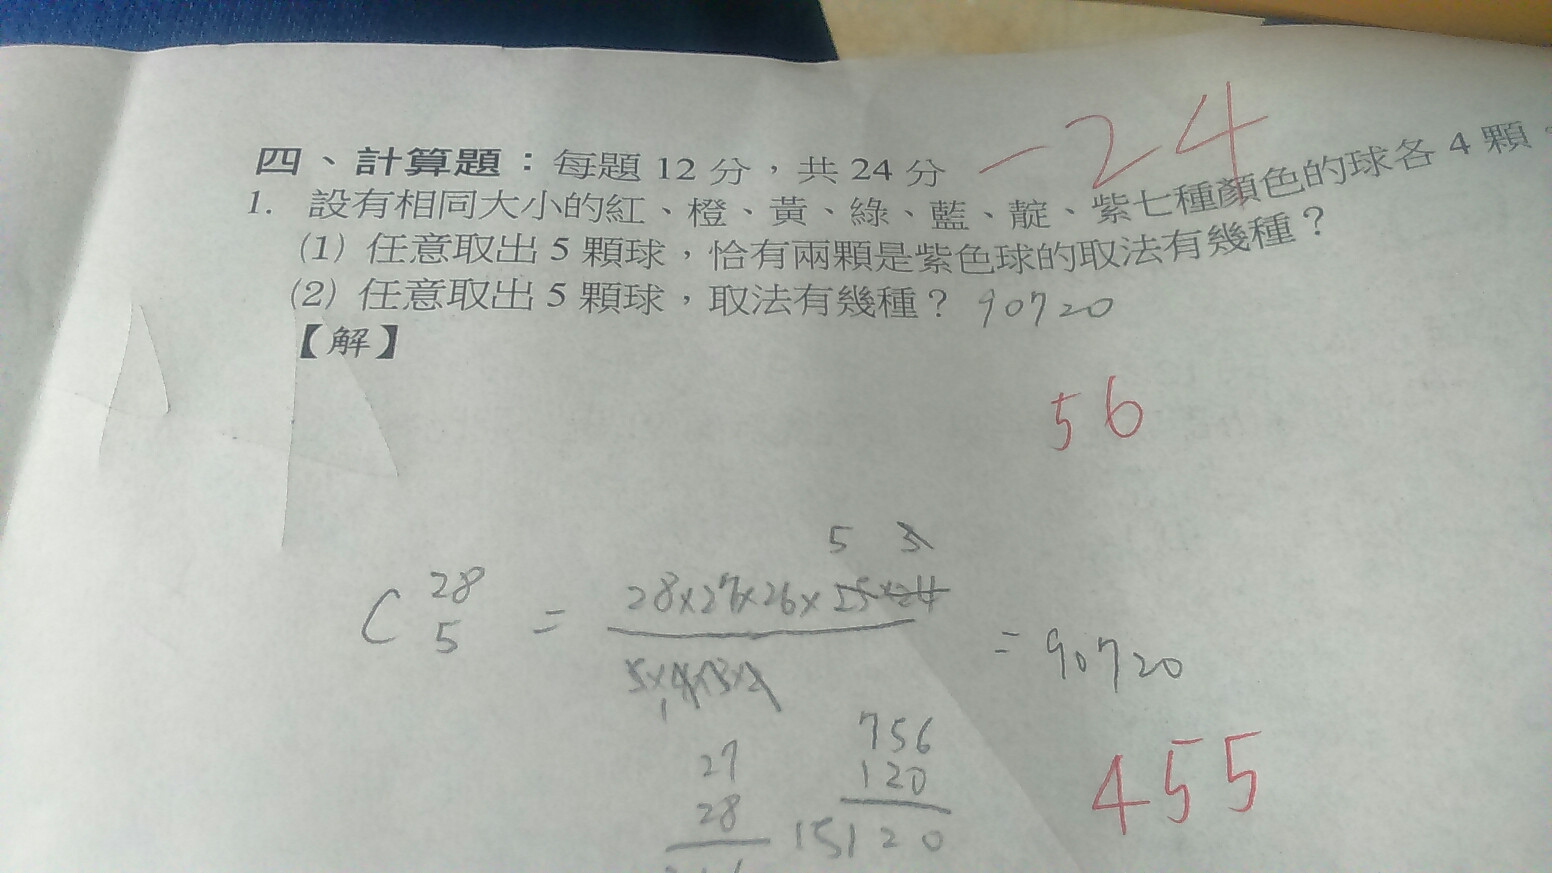 四、計算題：每題 12 分，共 24 分 -24
1. 設有相同大小的紅、橙、黃、綠、藍、靛、紫七種顏色的球各 4 顆。
(1) 任意取出 5 顆球，恰有兩顆是紫色球的取法有幾種？
(2) 任意取出 5 顆球，取法有幾種？ 90720
【解】
56
5 3
C 28 5 = 28×27×26×25×24 / 5×4×3×2 = 90720
1
27 756
28 120
15120
455